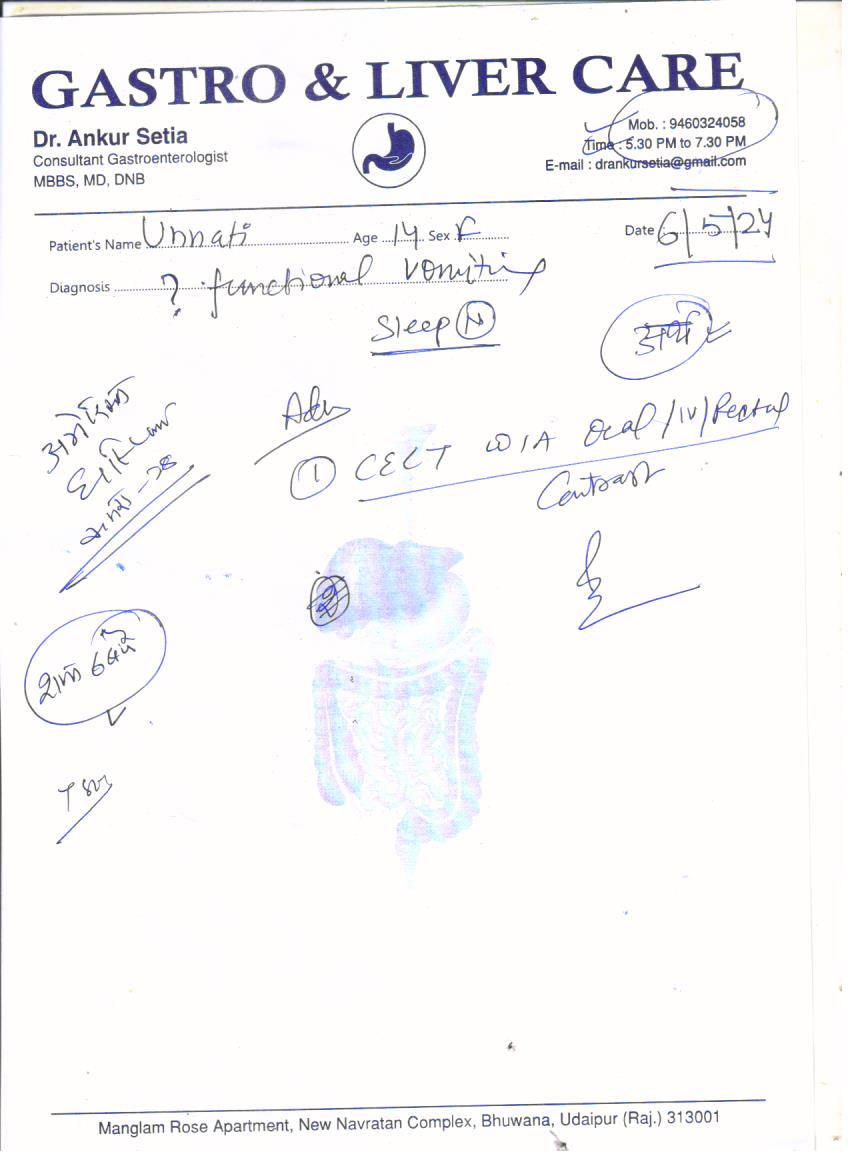 GASTRO & LIVER CARE
Dr. Ankur Setia
Consultant Gastroenterologist
MBBS, MD, DNB
Mob. : 9460324058
Time : 5.30 PM to 7.30 PM
E-mail : drankursetia@gmail.com
Patient's Name Unnati Age 14 Sex F Date 6/5/24
Diagnosis ? functional vomiting
Sleep N
Adv
1 CECT W/A Oral/IV/Rectal
Contrast
Manglam Rose Apartment, New Navratan Complex, Bhuwana, Udaipur (Raj.) 313001